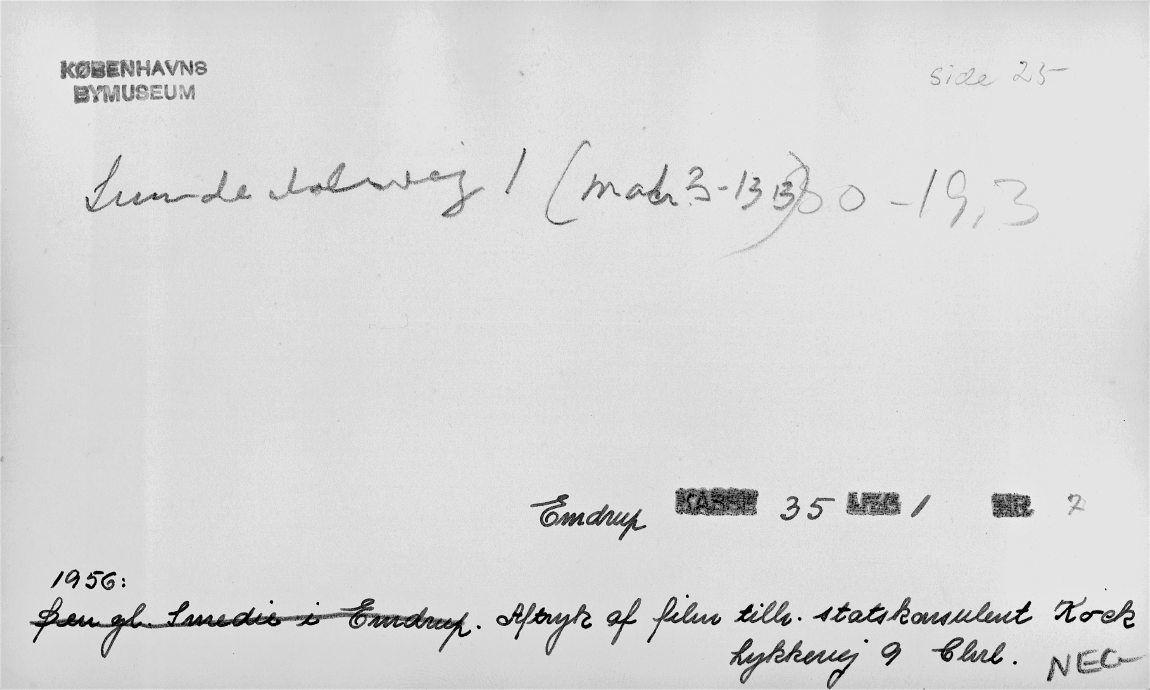 KØBENHAVNS
BYMUSEUM
side 25
1 (matr 3-13
Emdrup KASSE 35 LÆG 1 NR. 7
1956:
Den gl. Smedie i Emdrup. Aftryk af film tilh. statskonsulent Kock
Lykkevej 9 Chrl.
NEG